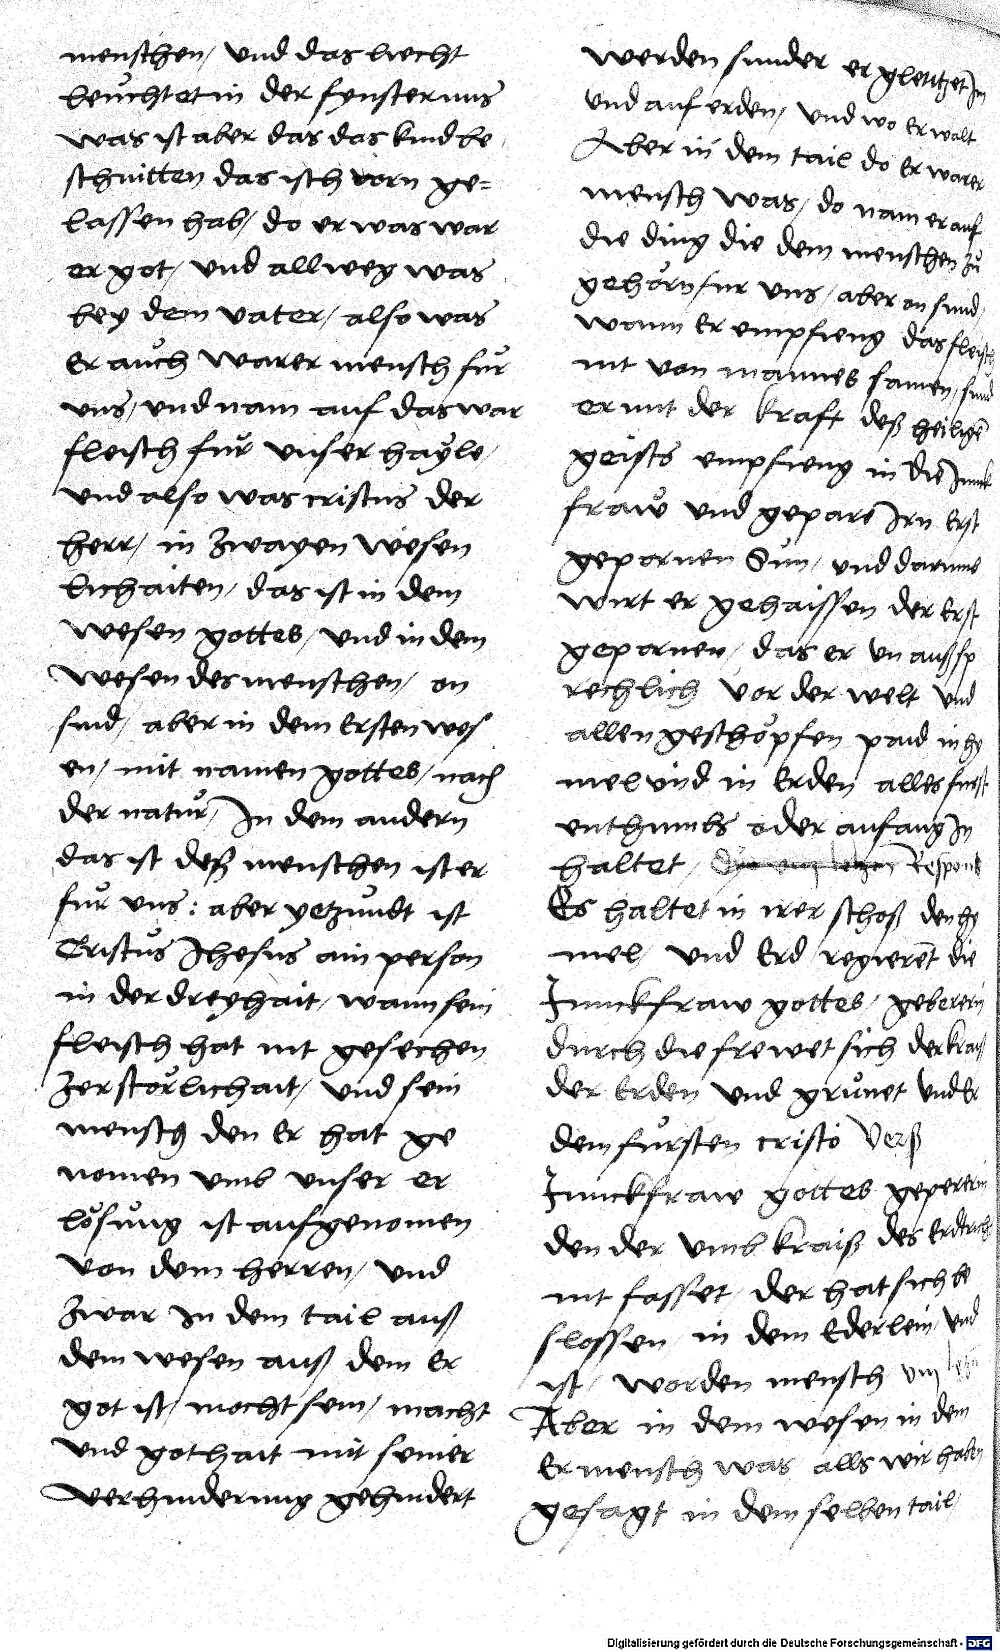 menschen / und das liecht
leuchtet in der fynsternus
was ist aber das das kind be
schnitten das isch vorn ge=
lassen hab / do er was war
er got / und allweg was
bey dem vater / also was
Er auch warer mensch für
uns / und nam auf das war
fleisch für unser hayle /
und also was cristus der
herr / in zwayen wesen
lichaiten / das ist in dem
wesen gottes / und in dem
wesen des menschen / on
sund / aber in dem Ersten wes
en / mit namen gottes / nach
der natur / In dem andern
das ist deß menschen ist er
für uns : aber yetzundt ist
Cristus Jhesus ain person
in der dreyhait / wann sein
fleisch hat nit gesechen
zerstörlichait / und sein
mensch den Er hat ge
nomen umb unser er
lösung ist aufgenomen
von dem herren / und
zwar In dem tail auß
dem wesen auß dem Er
got ist / mocht sein / macht
und gothait mit seiner
verhinderung gehindert
werden sunder er gleutzet In
und auf erden / und wo Er walt
Aber in dem tail do Er warer
mensch was / do nam er auf
die ding die dem menschen zů
gehörn für uns / aber on sund /
wann Er empfieng das fleisch
nit von mannes samen / sund
er mit der kraft deß heiligē
geists empfieng in die Junck
fraw und gepare Irn Erst
gepornen Sun / und darume
wirt er gehaissen der Erst
gepornen / das er un außsp
rechlich vor der welt und
allen geschöpfen paid in hy
mel und in Erden alles furst
enthumbs oder anfang In
haltet / Respons
Es haltet in irer schoß den hy
mel / und Erd regierēt die
Junckfraw gottes / gebererin
durch die frewet sich der krais
der Erden und grünet und Er
dem fursten cristo Verß
Junckfraw gottes gepererin
den der umb kraiß des Erdtrichs
nit fasset / der hat sich be
slossen in dem Ederlein / und
ist / worden mensch
Aber in dem wesen in dem
Er mensch was / alls wir haben
gesagt in dem selben tail /
Digitalisierung gefördert durch die Deutsche Forschungsgemeinschaft - DFG